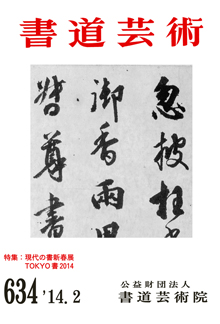 書道芸術
忽披枉
御香雨
尊書
特集：現代の書新春展
TOKYO書2014
634 '14.2
公益財団法人
書道芸術院